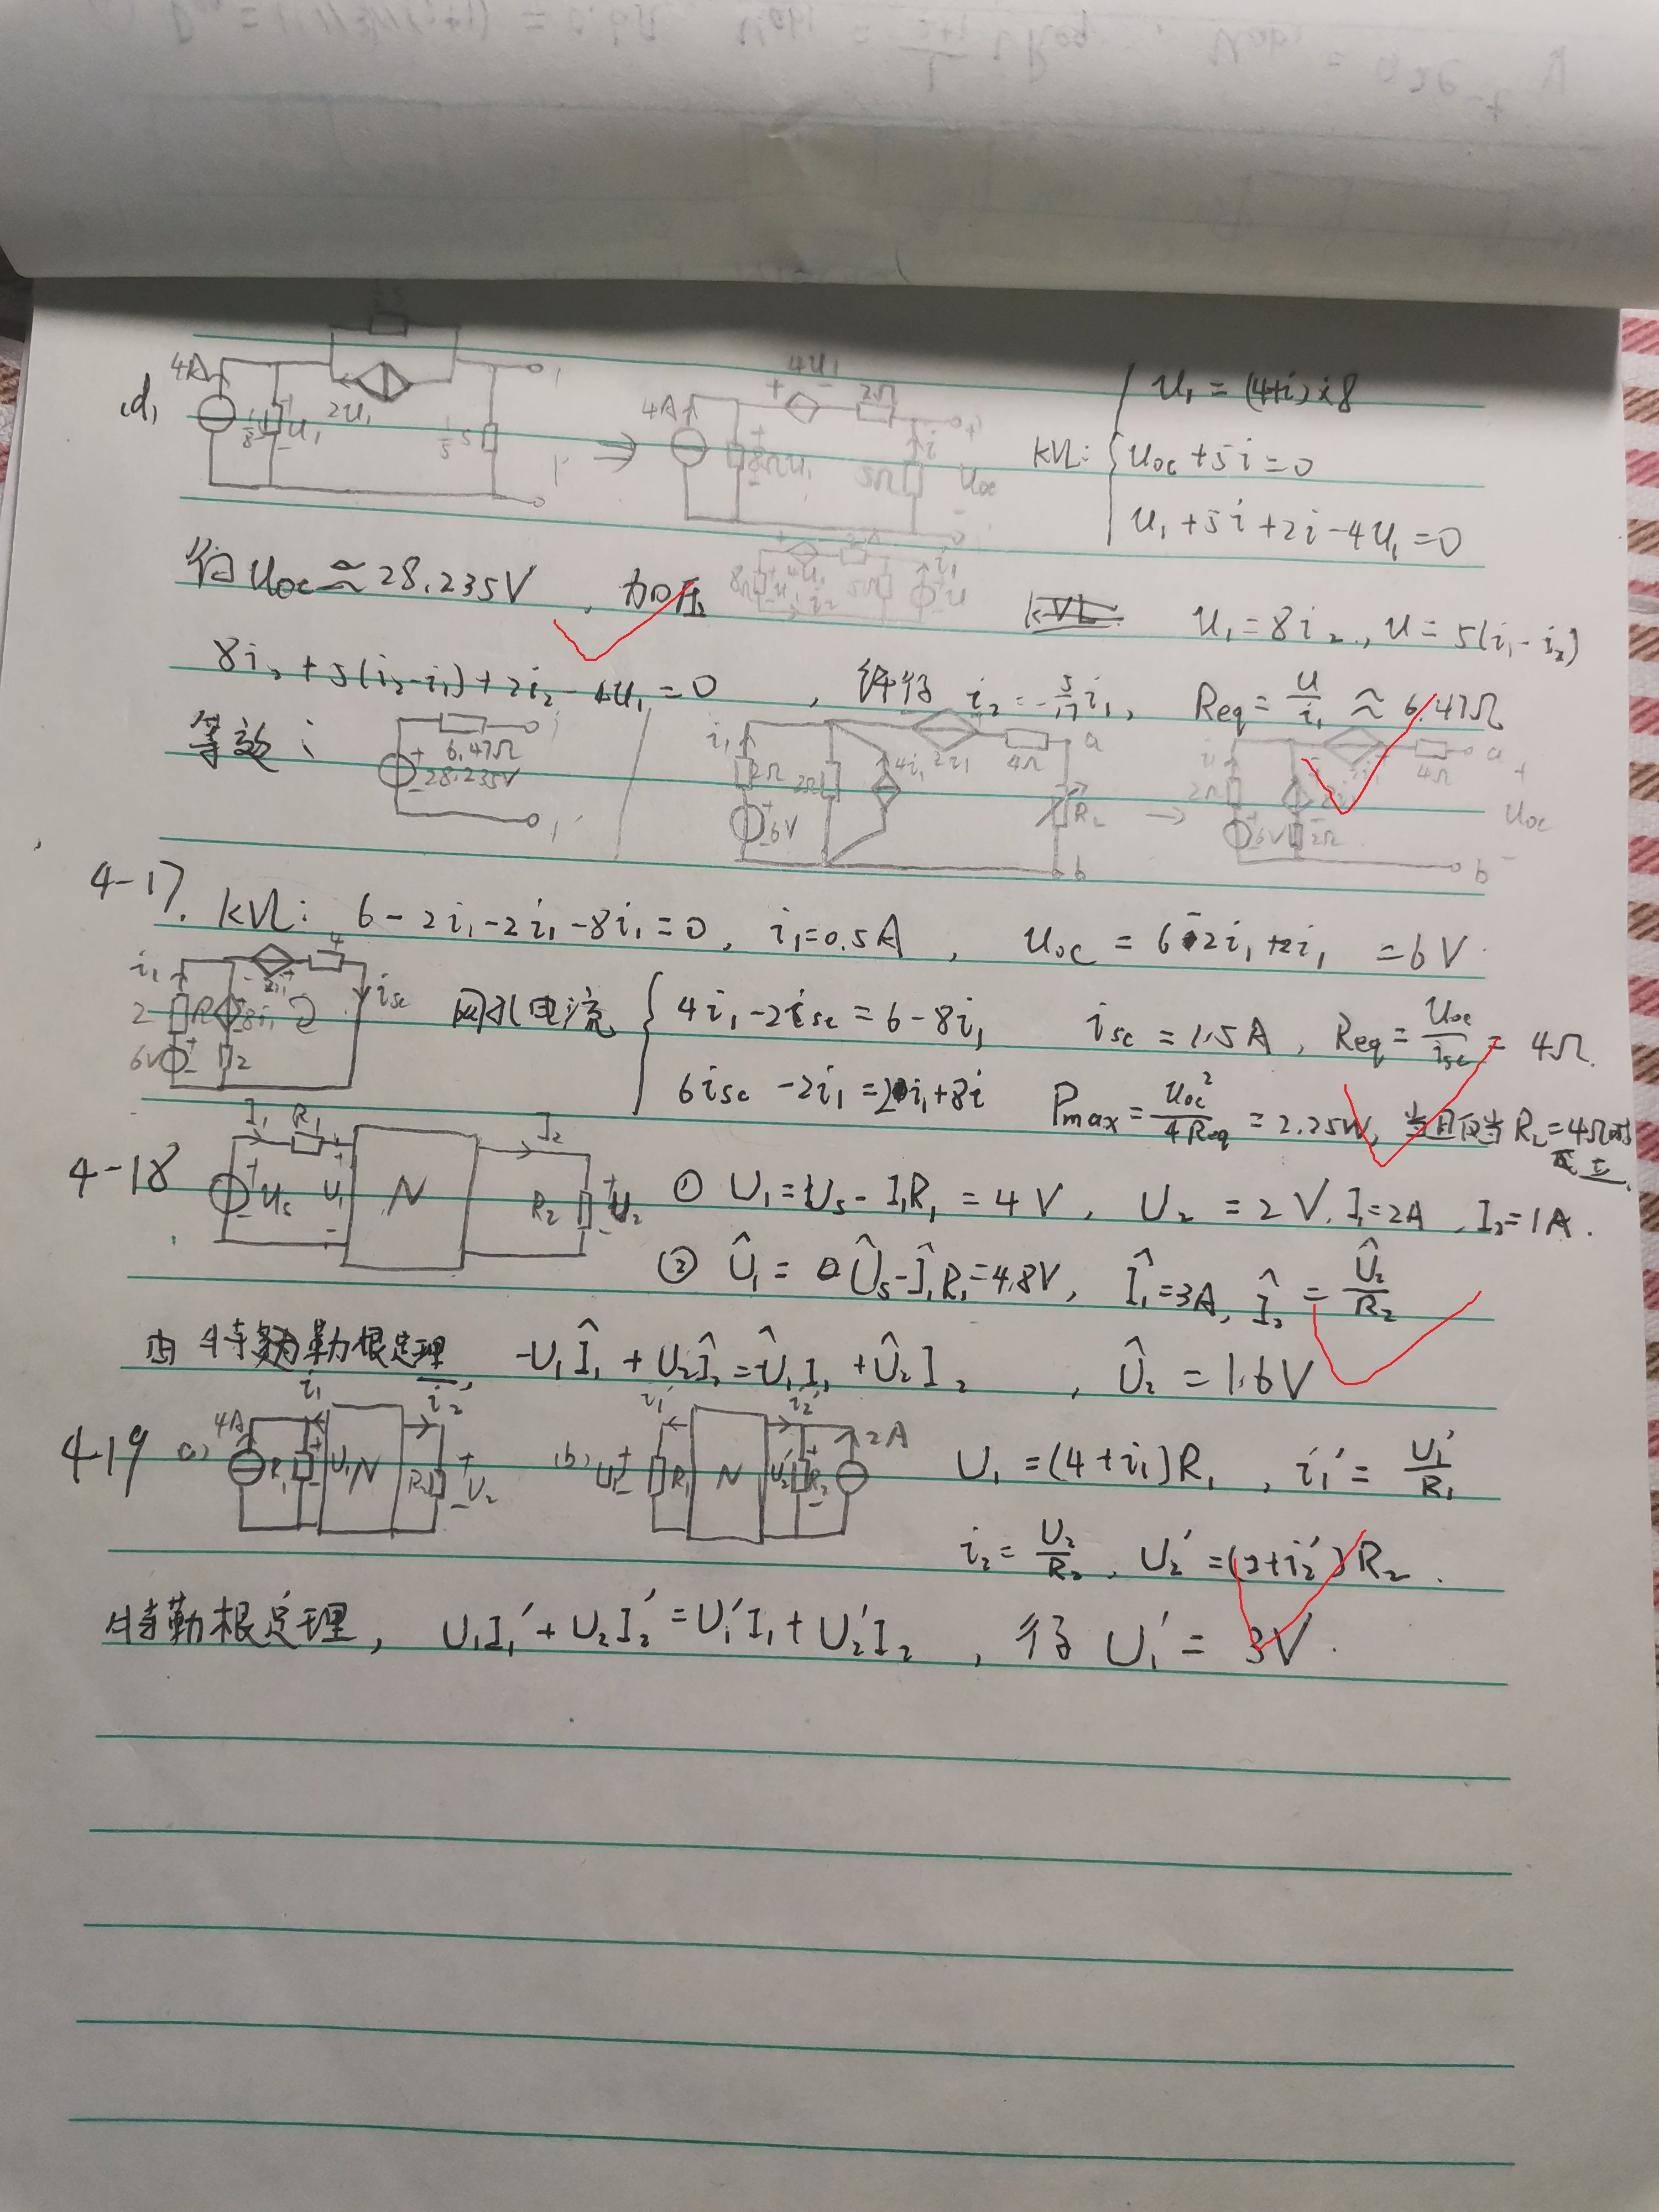 (d)
4A
2U₁
U₁
1/5 S
1
1'
4A
4U₁
2Ω
8Ω
U₁
5Ω
i
Uoc
U₁=(4+i)×8
KVL:
Uoc+5i=0
U₁+5i+2i-4U₁=0
得Uoc≈28.235V,加压
U₁=8i₂, U=5(i₁-i₂)
8i₂+5(i₂-i₁)+2i₂-4U₁=0, 解得 i₂=-5/17 i₁, Req=U/i₁≈6.47Ω
等效:
6.47Ω
28.235V
1
1'
i₁
2Ω
6V
2Ω
4i₁
2i₁
4Ω
a
b
i₁
2Ω
6V
2Ω
4Ω
a
b
Uoc
4-17.
KVL: 6-2i₁-2i₁-8i₁=0, i₁=0.5A, Uoc=6-2i₁+2i₁=6V
i₁
2
6V
8i₁
2
2i₁
4
isc
网孔电流
4i₁-2isc=6-8i₁
6isc-2i₁=2i₁+8i
isc=1.5A, Req=Uoc/isc=4Ω.
Pmax=Uoc²/4Req=2.25W, 当且仅当
4-18
I₁ R₁
Us
U₁
N
I₂
R₂
U₂
① U₁=Us-I₁R₁=4V, U₂=2V. I₁=2A, I₂=1A.
② Û₁=Ûs-Î₁R₁=4.8V, Î₁=3A, Î₂=Û₂/R₂
由特勒根定理, -U₁Î₁+U₂Î₂=-Û₁I₁+Û₂I₂, Û₂=1.6V
4-19
a)
4A
R₁
i₁
U₁
N
i₂
R₂
U₂
(b)
U₁'
i₁'
R₁
N
i₂'
U₂'
R₂
2A
U₁=(4+i₁)R₁, i₁'=U₁'/R₁
i₂=U₂/R₂, U₂'=(2+i₂')R₂.
特勒根定理, U₁I₁'+U₂I₂'=U₁'I₁+U₂'I₂, 得 U₁'=3V.